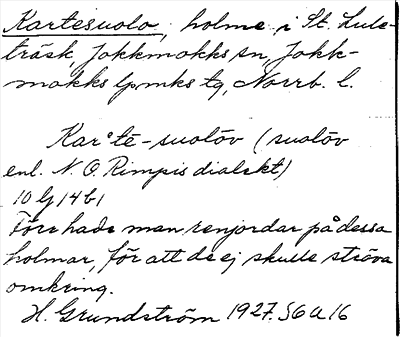 Kartesuolo, holme i St. Lule-
träsk, Jokkmokks sn, Jokk-
mokks lpmks tg, Norrb. l.
Kar̊'tē-suolōv (suolōv
enl. N. O. Rimpis dialekt)
10 G 14 b1
Förr hade man renjordar på dessa
holmar, för att de ej skulle ströva
omkring.
H. Grundström 1927. S6 a 16